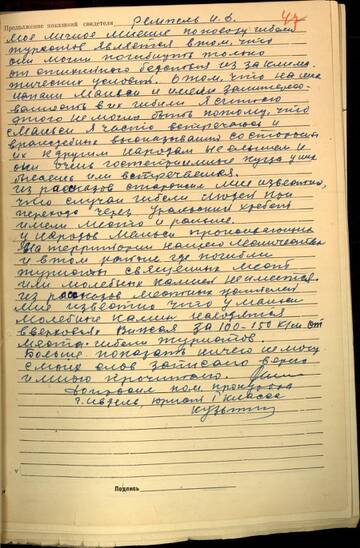 Продолжение показаний свидетеля Ремпель И. Д. 47
Мое личное мнение по поводу гибели
туристов является в том, что
они могли погибнуть только
от стихийного бедствия из за климa
тических условий. О том, что на них
напали Манси и имели заинтересо-
ванность в их гибели я считаю
этого не могло быть потому, что
с Манси я часто встречаюсь и
враждебных высказываний со стороны
их к другим народам не слышал и
они очень гостеприимные когда у них
бываешь или встречаешь.
Из рассказов старожил мне известно,
что случаи гибели людей при
переходе через Уральский хребет
имели место и раньше.
У народов Манси проживающих
на территории нашего лесничества
и в том районе где погибли
туристы священных мест
или молебных камней не имеется.
Из рассказов местных жителей
мне известно что у манси
молебные камни находятся
в верховьях Вижая за 100-150 км. от
места гибели туристов.
Больше показать ничего не могу
с моих слов записано верно
и мною прочитано.
Допросил пом прокурора
г. Ивдель, юрист 1 класса
Кузьм
Подпись